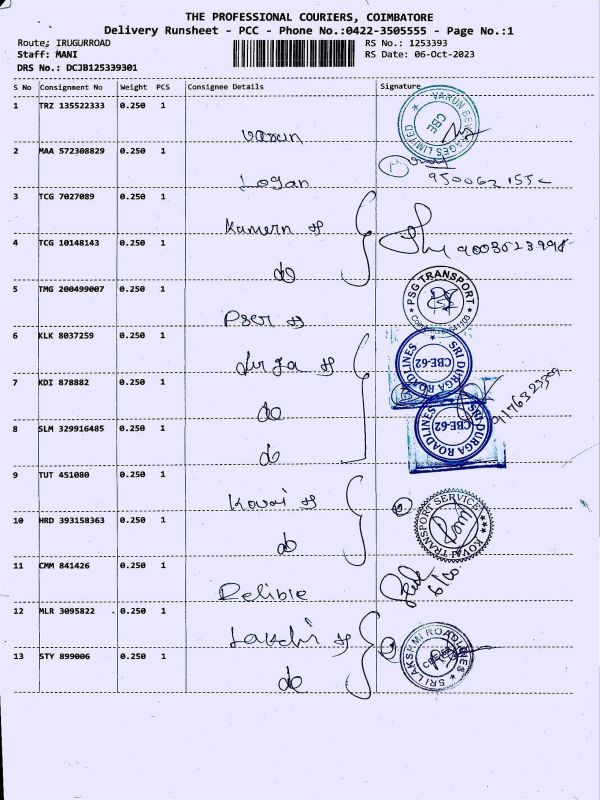 THE PROFESSIONAL COURIERS, COIMBATORE
Delivery Runsheet - PCC - Phone No.:0422-3505555 - Page No.:1
Route: IRUGURROAD
RS No.: 1253393
Staff: MANI
RS Date: 06-Oct-2023
DRS No.: DCJB125339301
S No Consignment No Weight PCS Consignee Details Signature
1 TRZ 135522333 0.250 1
VARUN BEVERAGES LIMITED
CBE
Varun
2 MAA 572308829 0.250 1
Logan
3 TCG 7027089 0.250 1
4 TCG 10148143 0.250 1
do
5 TMG 200499007 0.250 1
PSG TRANSPORT
6 KLK 8037259 0.250 1
Durga
SRI DURGA ROADLINES
CBE-62
7 KDI 878882 0.250 1
do
8 SLM 329916485 0.250 1
SRI DURGA ROADLINES
CBE-62
do
9 TUT 451080 0.250 1
Kovai
KOVAI TRANSPORT SERVICE
10 HRD 393158363 0.250 1
do
11 CMM 841426 0.250 1
Relible
12 MLR 3095822 0.250 1
SRI LAKSHMI ROADLINES
13 STY 899006 0.250 1
do